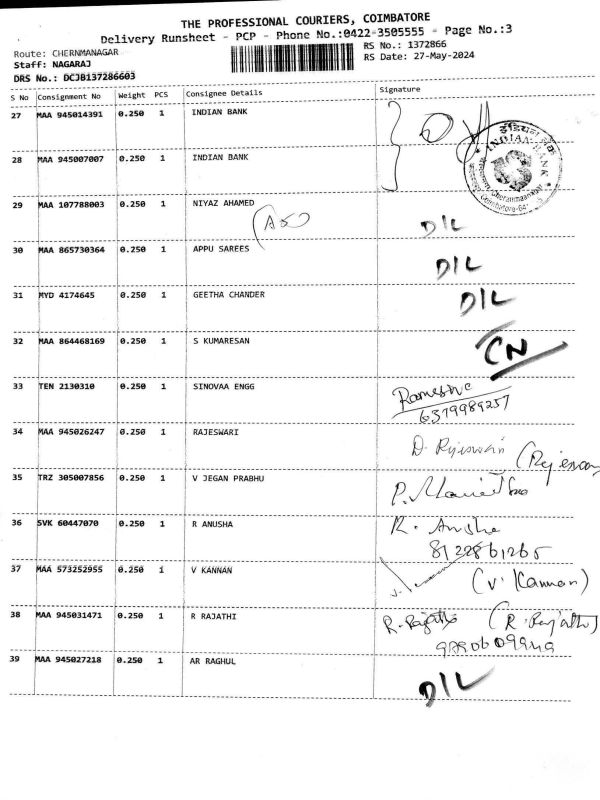 THE PROFESSIONAL COURIERS, COIMBATORE
Delivery Runsheet - PCP - Phone No.:0422-3505555 - Page No.:3
Route: CHERNMANAGAR
RS No.: 1372866
Staff: NAGARAJ
RS Date: 27-May-2024
DRS No.: DCJB137286603
S No Consignment No Weight PCS Consignee Details Signature
27 MAA 945014391 0.250 1 INDIAN BANK
इंडियन बैंक
INDIAN BANK
28 MAA 945007007 0.250 1 INDIAN BANK
29 MAA 107788003 0.250 1 NIYAZ AHAMED D/L
30 MAA 865730364 0.250 1 APPU SAREES D/L
31 MYD 4174645 0.250 1 GEETHA CHANDER D/L
32 MAA 864468169 0.250 1 S KUMARESAN CN
33 TEN 2130310 0.250 1 SINOVAA ENGG
6379989257
34 MAA 945026247 0.250 1 RAJESWARI
35 TRZ 305007856 0.250 1 V JEGAN PRABHU
36 SVK 60447070 0.250 1 R ANUSHA R. Anusha
8122861265
37 MAA 573252955 0.250 1 V KANNAN (V. Kannan)
38 MAA 945031471 0.250 1 R RAJATHI R. Rajathi (R. Rajathi)
39 MAA 945027218 0.250 1 AR RAGHUL D/L